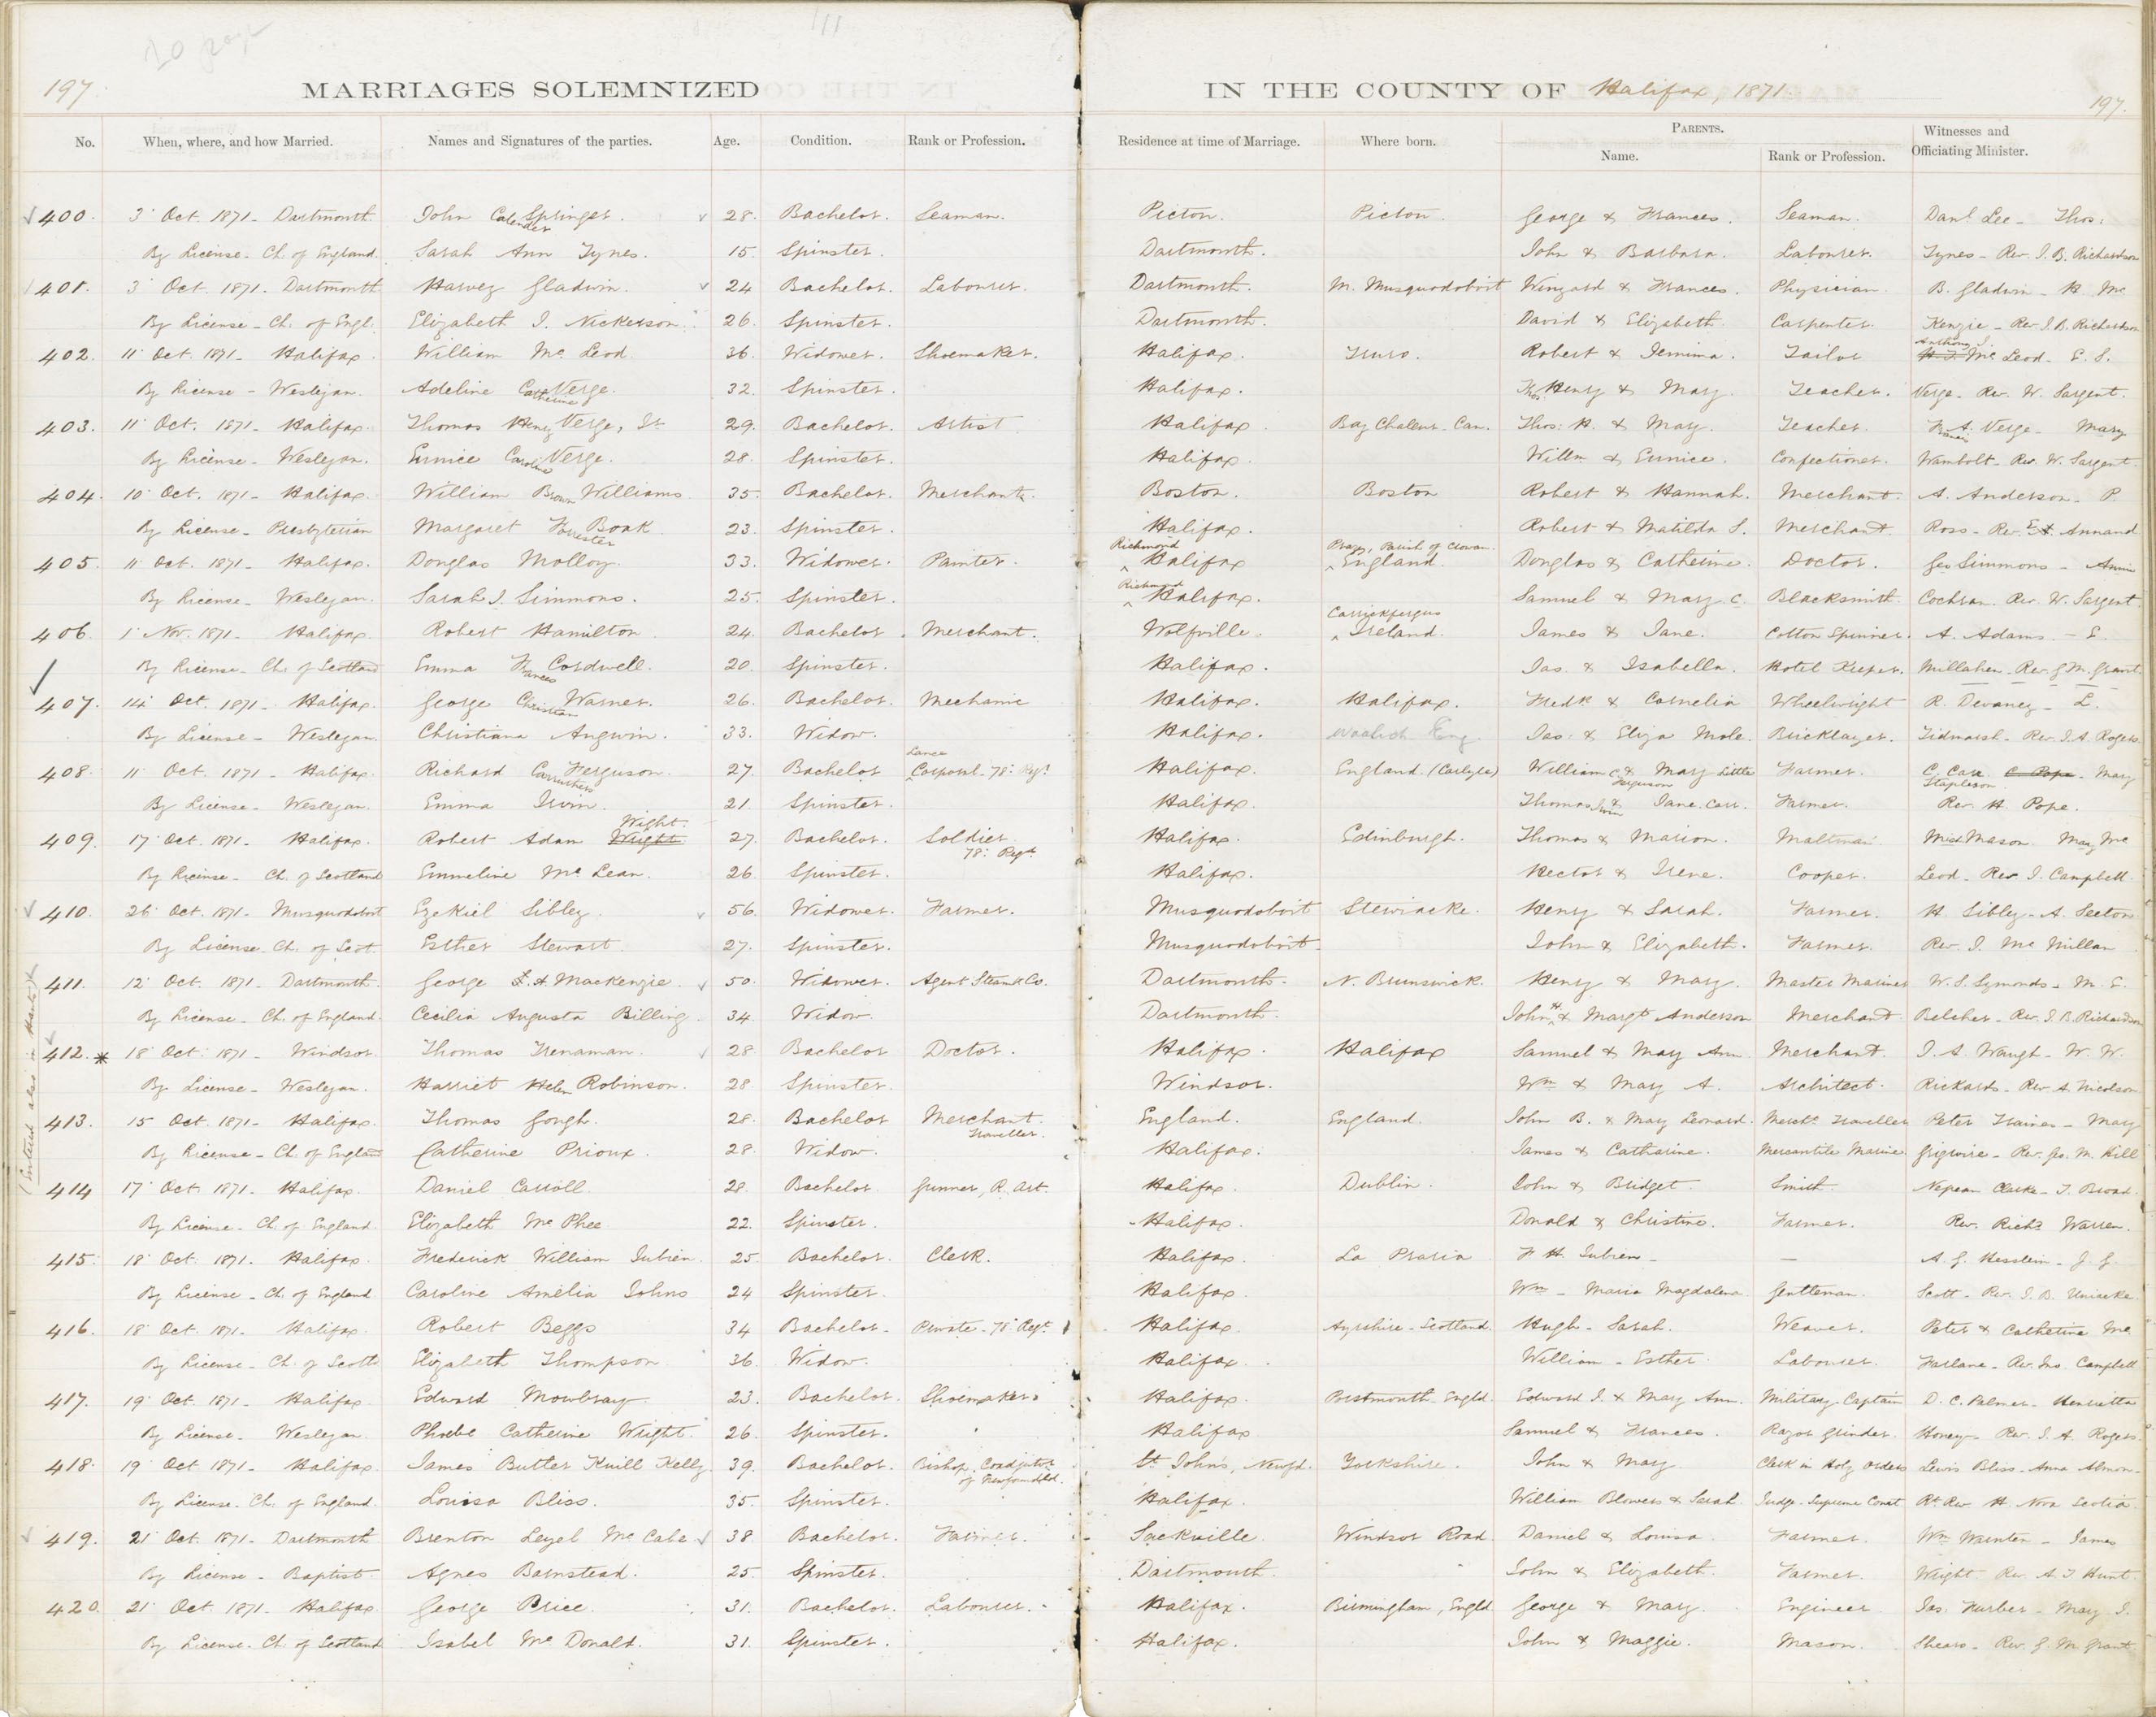 20 page
111
197.
MARRIAGES SOLEMNIZED IN THE COUNTY OF Halifax, 1871.
197.
PARENTS.
No. When, where, and how Married. Names and Signatures of the parties. Age. Condition. Rank or Profession. Residence at time of Marriage. Where born. Name. Rank or Profession. Witnesses and Officiating Minister.
400. 3 Oct. 1871 - Dartmouth. John Calender Springer. 28. Bachelor. Seaman. Picton. Picton. George & Frances. Seaman. Danl Lee - Thos:
By License - Ch. of England. Sarah Ann Tynes. 15. Spinster. Dartmouth. John & Barbara. Labourer. Tynes - Rev. J. B. Richardson
401. 3 Oct. 1871 - Dartmouth Harvey Gladwin. 24 Bachelor. Labourer. Dartmouth. M. Musquodoboit Winyard & Frances. Physician. B. Gladwin - H Mc
By License - Ch. of Engl. Elizabeth J. Nickerson. 26. Spinster. Dartmouth. David & Elizabeth. Carpenter. Kenzie - Rev. J. B. Richardson
402. 11 Oct. 1871 - Halifax. William Mc Leod 36. Widower. Shoemaker. Halifax. Truro. Robert & Jemima. Tailor Anthony J. Mc Leod - E. S.
By License - Wesleyan. Adeline Catherine Verge. 32. Spinster. Halifax. Thos. Henry & Mary. Teacher. Verge - Rev. W. Sargent.
403. 11 Oct. 1871 - Halifax. Thomas Henry Verge, Jr 29. Bachelor. Artist Halifax. Bay Chaleur - Can. Thos: H. & Mary. Teacher. Francis A. Verge - Mary
By License - Wesleyan. Eunice Caroline Verge. 28. Spinster. Halifax. Willm & Eunice. Confectioner. Wambolt - Rev. W. Sargent.
404. 10 Oct. 1871 - Halifax. William Brown Williams 35. Bachelor. Merchant. Boston. Boston Robert & Hannah. Merchant. A. Anderson - P.
By License - Presbyterian Margaret Forrester Boak 23. Spinster. Halifax. Robert & Matilda S. Merchant. Ross - Rev. E. Annand
405. 11 Oct. 1871 - Halifax. Douglas Molloy. 33. Widower. Painter. Richmond Halifax Praze, Parish of Crowan. England. Douglas & Catherine. Doctor. Geo Simmons - Annie
By License - Wesleyan. Sarah J. Simmons. 25. Spinster. Richmond Halifax. Samuel & Mary C. Blacksmith. Cochran. Rev. W. Sargent.
406. 1 Nov. 1871 - Halifax. Robert Hamilton 24. Bachelor. Merchant. Wolfville. Carrickfergus Ireland. James & Jane. Cotton Spinner. A. Adams - E.
By License - Ch. of Scotland Emma Frances Cordwell. 20. Spinster. Halifax. Jas. & Isabella. Hotel Keeper. Millahen - Rev. G M. Grant.
407. 14 Oct. 1871 - Halifax. George Christian Warner. 26. Bachelor. Mechanic Halifax. Halifax. Fredk & Cornelia Wheelwright R. Devaney - L.
By License - Wesleyan. Christiana Angwin. 33. Widow. Halifax. Woolich Eng. Jas: & Eliza Mole. Bricklayer. Tidmarsh - Rev. J. A. Rogers
408. 11 Oct. 1871 - Halifax. Richard Carruthers Ferguson. 27. Bachelor Lance Corporal - 78: Regt. Halifax. England. (Carlyle) William C. Ferguson & Mary Little Farmer. C. Carr. C Pope - Mary
By License - Wesleyan. Emma Irvin. 21. Spinster. Halifax. Thomas Irvin & Jane Carr. Farmer. Stapleson Rev. H. Pope.
409. 17 Oct. 1871. - Halifax. Robert Adam Wright Wight. 27. Bachelor. Soldier 78: Regt. Halifax. Edinburgh. Thomas & Marion. Maltman Mich Mason Mary Mc
By License - Ch. of Scotland Emmeline Mc Lean. 26 Spinster. Halifax. Hector & Irene. Cooper. Leod - Rev J. Campbell.
410. 26 Oct. 1871 - Musquodoboit Ezekiel Sibley 56. Widower. Farmer. Musquodoboit Stewiacke. Henry & Sarah. Farmer. H. Sibley - A. Seeton
By License. Ch. of Scot. Esther Stewart. 27. Spinster. Musquodoboit John & Elizabeth. Farmer. Rev. J. Mc Millan
411. 12 Oct. 1871 - Dartmouth. George S. A. Mackenzie. 50. Widower. Agent Steam Co. Dartmouth. N. Brunswick. Henry & Mary. Master Mariner W. S. Symonds - M. E.
By License - Ch. of England. Cecilia Augusta Billing 34. Widow. Dartmouth. John H. & Margt Anderson Merchant. Belcher - Rev. J. B. Richardson
(Entered also in Hants)*
412.* 18 Oct. 1871 - Windsor. Thomas Trenaman. 28 Bachelor Doctor. Halifax. Halifax Samuel & Mary Ann. Merchant. J. A. Waugh - W. W.
By License - Wesleyan. Harriet Helen Robinson. 28 Spinster. Windsor. Wm & Mary A. Architect. Rickards - Rev A. Nicolson
413. 15 Oct. 1871 - Halifax. Thomas Gough. 28. Bachelor Merchant Traveller. England. England. John B. & Mary Leonard. Mercht Traveller Peter Trainer - Mary
By License - Ch of England Catherine Prioux. 28 Widow. Halifax. James & Catharine. Mercantile Marine. Grigroire - Rev. Geo. M. Hill
414 17 Oct. 1871. - Halifax. Daniel Carroll 28. Bachelor Gunner, R. Art. Halifax. Dublin. John & Bridget. Smith. Nepean Clarke - J. Broad.
By License - Ch. of England Elizabeth Mc Phee 22. Spinster. Halifax. Donald & Christine. Farmer. Rev. Richd Warren.
415. 18 Oct. 1871. - Halifax. Frederick William Jubien. 25. Bachelor. Clerk. Halifax. La Praria F H. Jubien - — A. G. Hesslein - J. G.
By License - Ch of England Caroline Amelia Johns 24 Spinster. Halifax. Wm - Maria Magdalena Gentleman. Scott - Rev. J. B. Uniacke
416. 18 Oct. 1871 - Halifax. Robert Beggs 34 Bachelor - Private - 78 Regt. Halifax. Ayrshire - Scotland. Hugh - Sarah. Weaver. Peter & Catherine Mc
By License - Ch. of Scotld. Elizabeth Thompson 36. Widow. Halifax. William - Esther Labourer. Farlane - Rev. Jno. Campbell
417. 19 Oct. 1871. - Halifax. Edward Mowbray. 23. Bachelor. Shoemaker. Halifax. Portsmouth Engld. Edward J. & Mary Ann. Military Captain D. C. Palmer - Henrietta
By License - Wesleyan. Phoebe Catherine Wright. 26. Spinster. Halifax Samuel & Frances. Razor Grinder. Honey - Rev. J. A. Rogers
418. 19 Oct. 1871 - Halifax. James Butler Knill Kelly 39. Bachelor. Bishop, Coadjutor of Newfoundld. St. John's, Newfd. Yorkshire. John & Mary Clerk in Holy Orders Lewis Bliss - Anna Almon -
By License - Ch. of England. Louisa Bliss. 35. Spinster. Halifax. William Blowers & Sarah. Judge - Supreme Court Rt. Rev H. Nova Scotia.
419. 21 Oct. 1871 - Dartmouth Brenton Mc Cabe 38. Bachelor. Farmer. Sackville. Windsor Road. Daniel & Louisa Farmer. Wm - James
By License - Baptist. Agnes Barnstead. 25. Spinster. Dartmouth. John & Elizabeth. Farmer. Wright Rev. A. J Hunt.
420. 21 Oct. 1871 - Halifax. George Price. 31. Bachelor. Labourer. Halifax. Birmingham, Engld George & Mary. Engineer Jas. Furber - Mary J.
By License - Ch. of Scotland Isabel Mc Donald. 31. Spinster. Halifax. John & Maggie. Mason. Shears - Rev. G. M. Grant